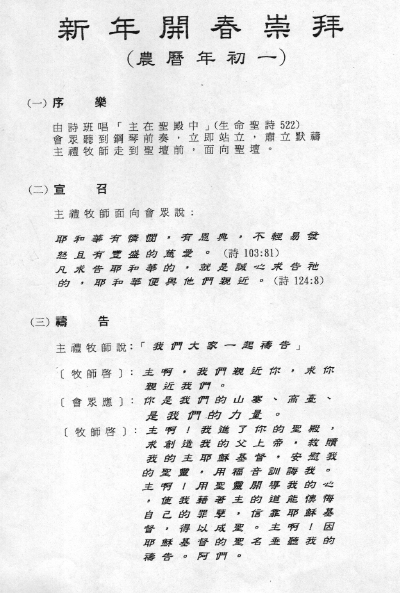 新年開春崇拜
(農曆年初一)
(一) 序 樂
由詩班唱「主在聖殿中」(生命聖詩522)
會眾聽到鋼琴前奏，立即站立，肅立默禱
主禮牧師走到聖壇前，面向聖壇。
(二) 宣 召
主禮牧師面向會眾說：
耶和華有憐憫，有恩典，不輕易發
怒且有豐盛的慈愛。(詩 103:81)
凡求告耶和華的，就是誠心求告祂
的，耶和華便與他們親近。(詩 124:8)
(三) 禱 告
主禮牧師說：「我們大家一起禱告」
〔牧師啓〕：主啊，我們親近你，求你
親近我們。
〔會眾應〕：你是我們的山寨、高臺、
是我們的力量。
〔牧師啓〕：主啊！我進了你的聖殿，
求創造我的父上帝，救贖
我的主耶穌基督，安慰我
的聖靈，用福音訓誨我。
主啊！用聖靈開導我的心
，使我藉著主的道能懺悔
自己的罪孽，信靠耶穌基
督，得以成聖。主啊！因
耶穌基督的聖名垂聽我的
禱告。阿們。